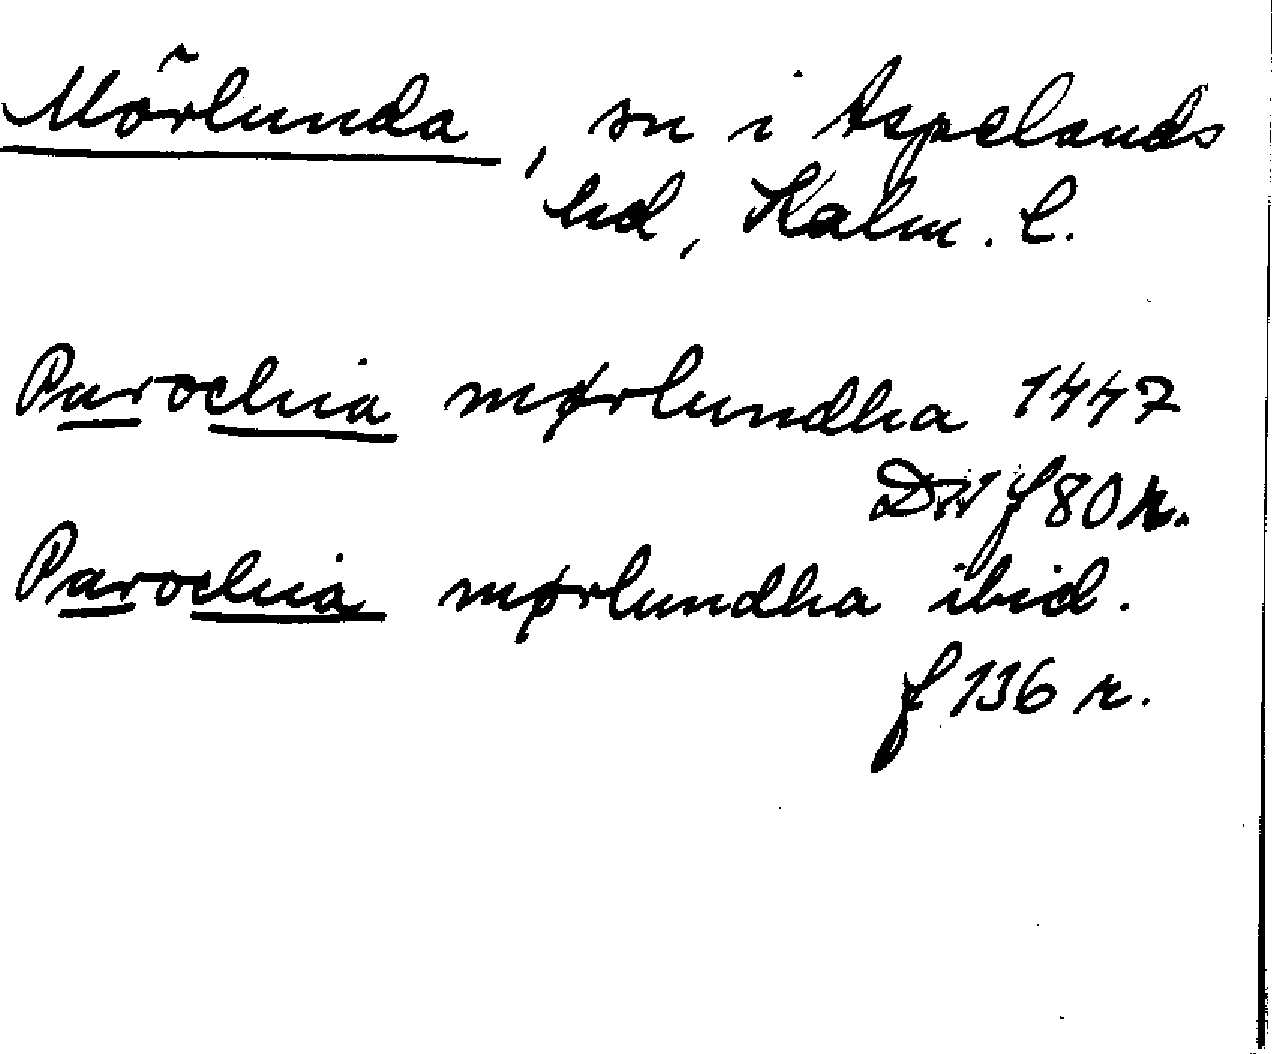 Mörlunda, sn i Aspelands
hd, Kalm. l.
Parochia mørlundha 1447
f 80 r.
Parochia mørlundha ibid.
f 136 r.